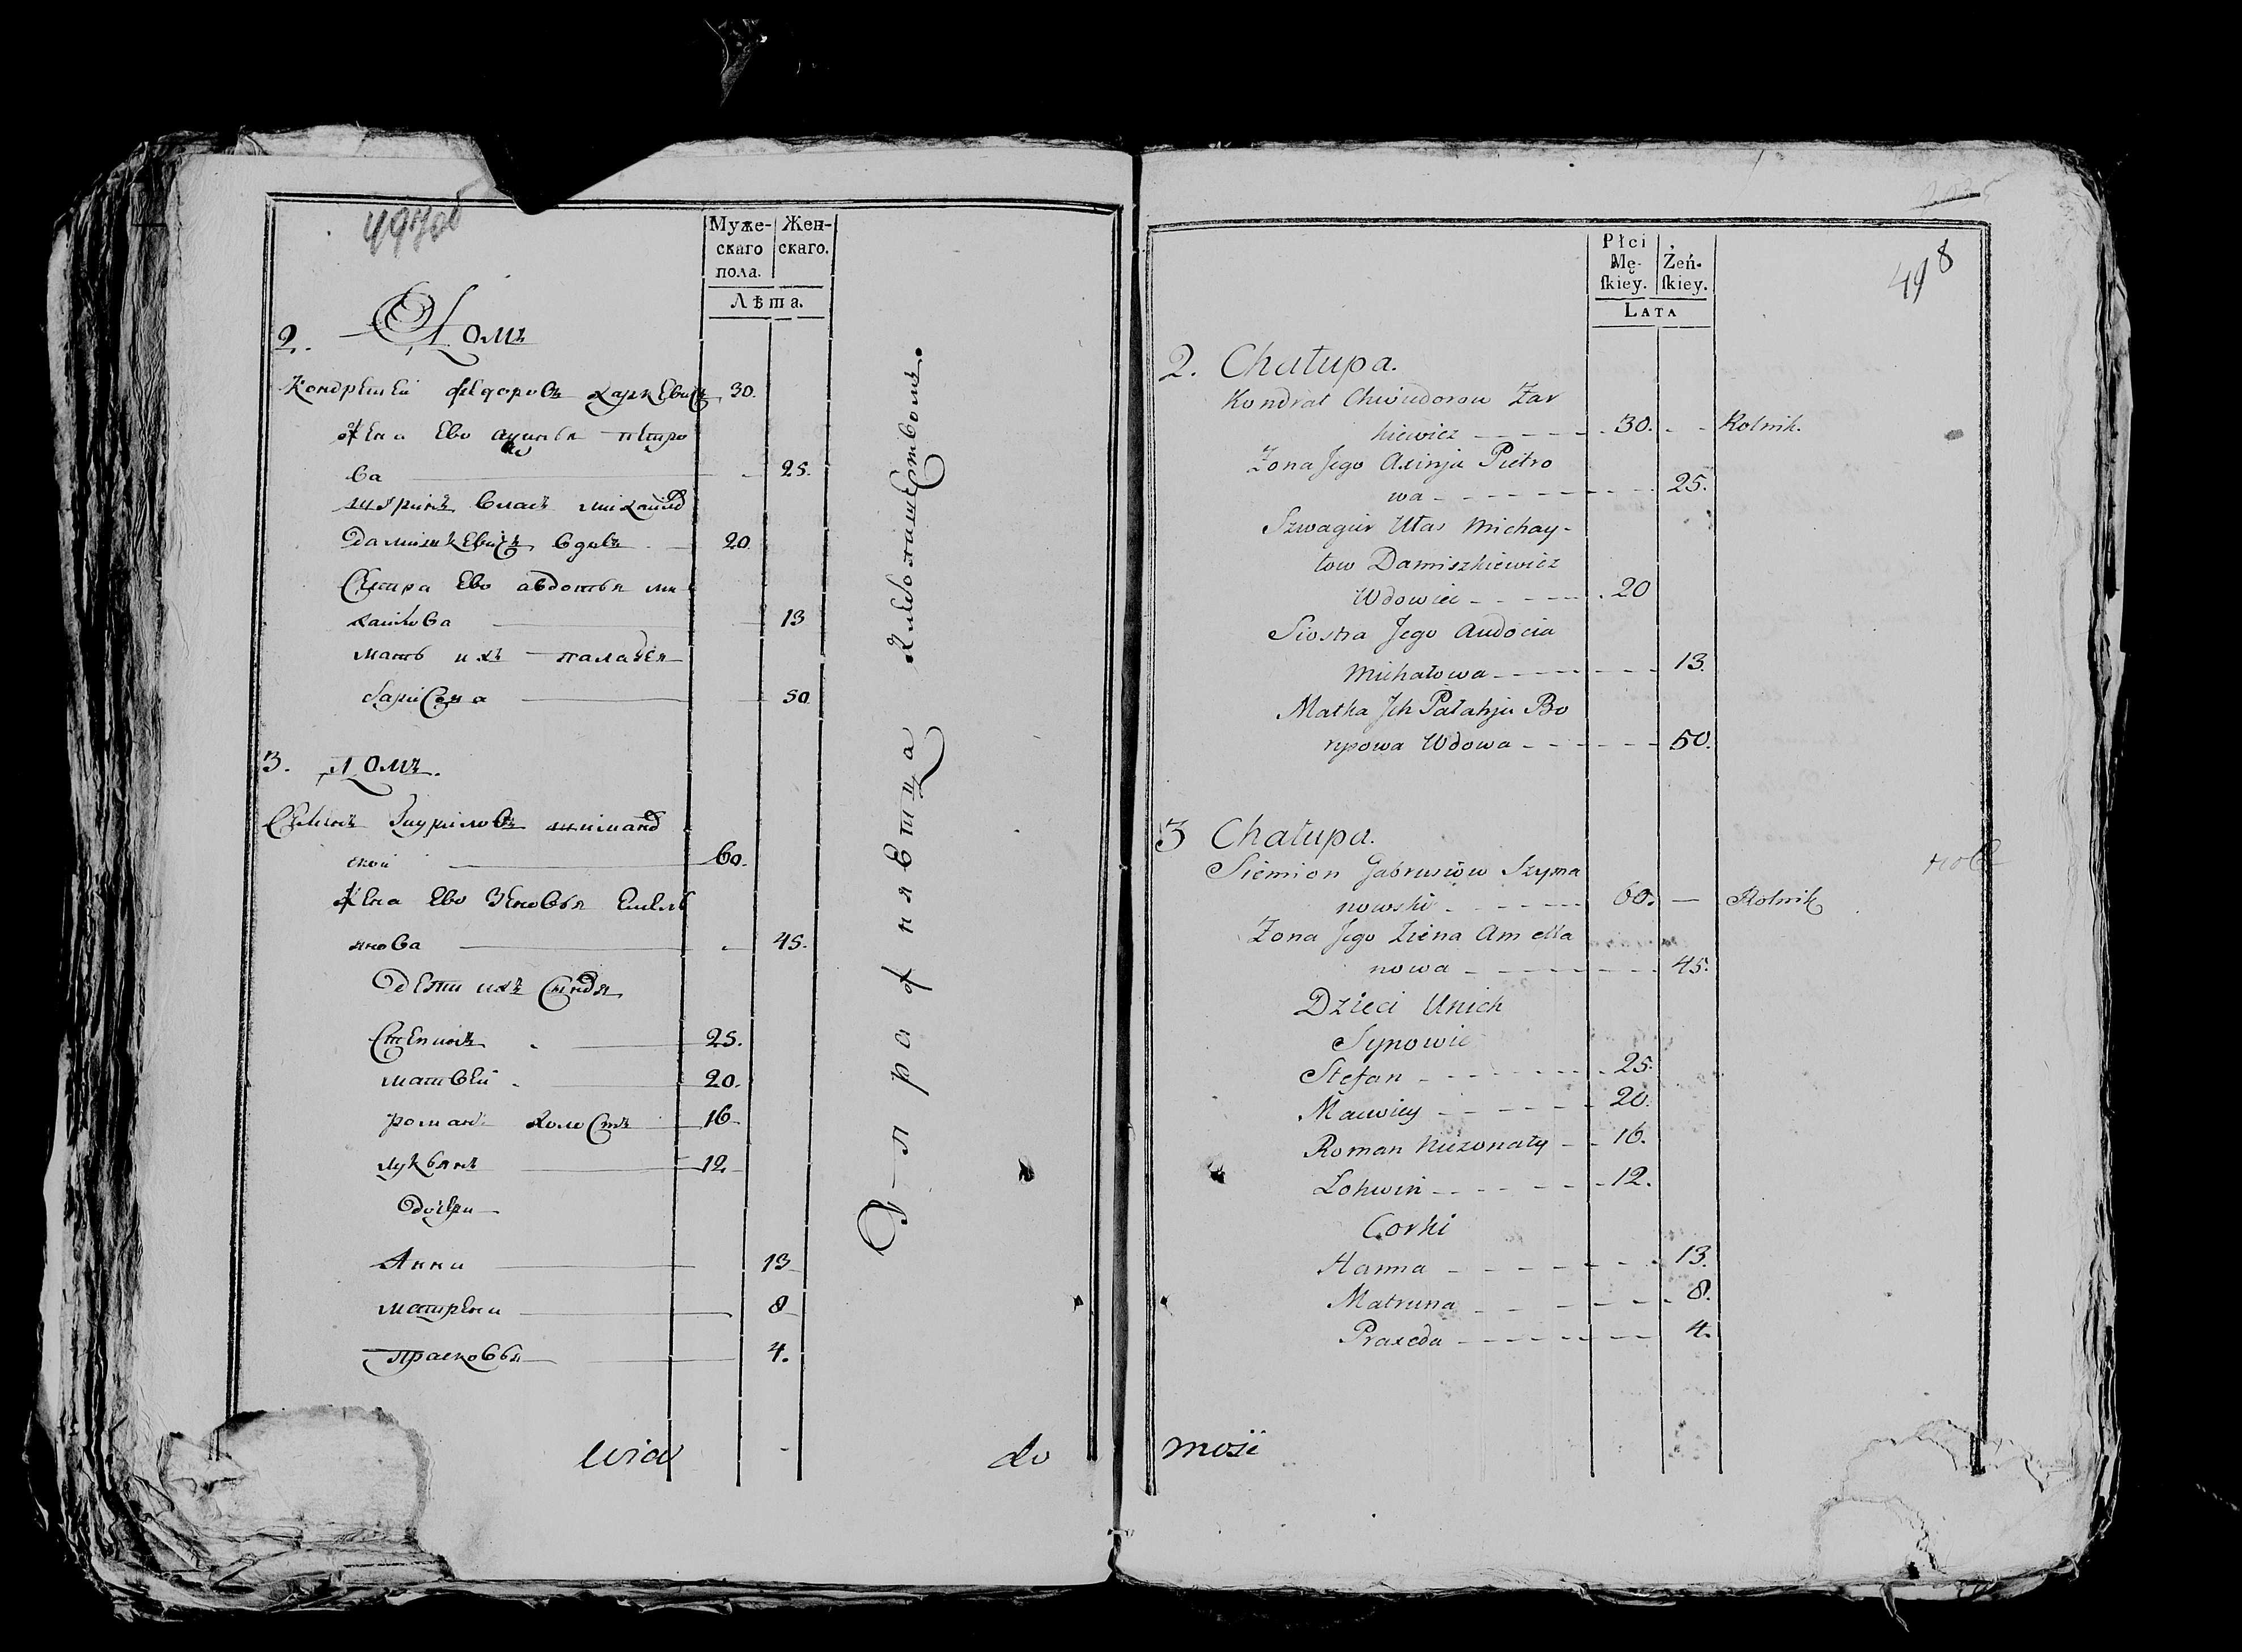 497об
Муже-
скаго
пола.
Жен-
скаго.
Лѣта.
2. Домъ
Кондратей Федоровъ Харкевичъ 30.
Жена Ево Петро
ва 25.
шуринъ Власъ Михаилов
Дамишкевичъ вдовъ 20
Сестра Ево авдотья ми
хаилова 13
мать ихъ палагея
50
3. Домъ.
Семенъ шиманов
ской 60.
Жена Ево Зеновья Емель
янова 45.
Дети ихъ
Степанъ 25.
матвей 20.
романъ холостъ 16
лукьянъ 12
дочери
Анна 13
матрена 8
прасковья 4.
Упражняетца хлебопашествомъ.
wia do
498
Płci
Mę-
ſkiey.
Żeń-
ſkiey.
LATA
2. Chałupa.
Kondrat Chwiedorow Zar
kiewicz 30. Rolnik.
Żona Jego Axinja Pietro
wa 25.
Szwagier Ułas Michay-
łow Damiszkiewicz
Wdowiec 20
Siostra Jego Audocia
Michałowa 13.
Matka Jch Pałahja Bo
rysowa Wdowa 50.
3 Chałupa.
Siemion Gabrusiow Szyma
nowski 60. Rolnik
Żona Jego Ziena Amella
nowa 45.
Dzieci Unich
Synowie
Stefan 25.
Maciwiey 20.
Roman Nieżonaty 16.
Lohwin 12.
Corki
Hanna 13.
Matruna 8.
Praxeda 4.
mosĭ